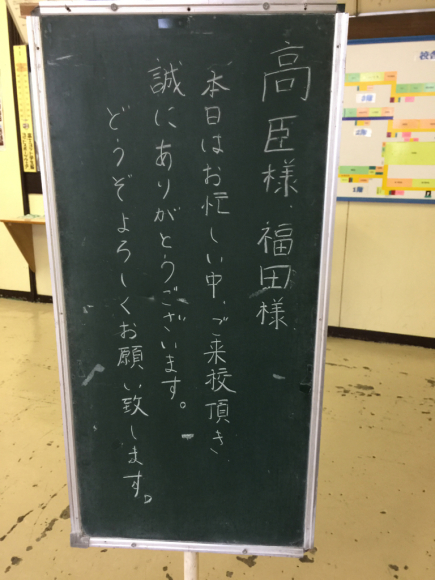 高臣様、福田様
本日はお忙しい中、ご来校頂き
誠にありがとうございます。
どうぞよろしくお願い致します。